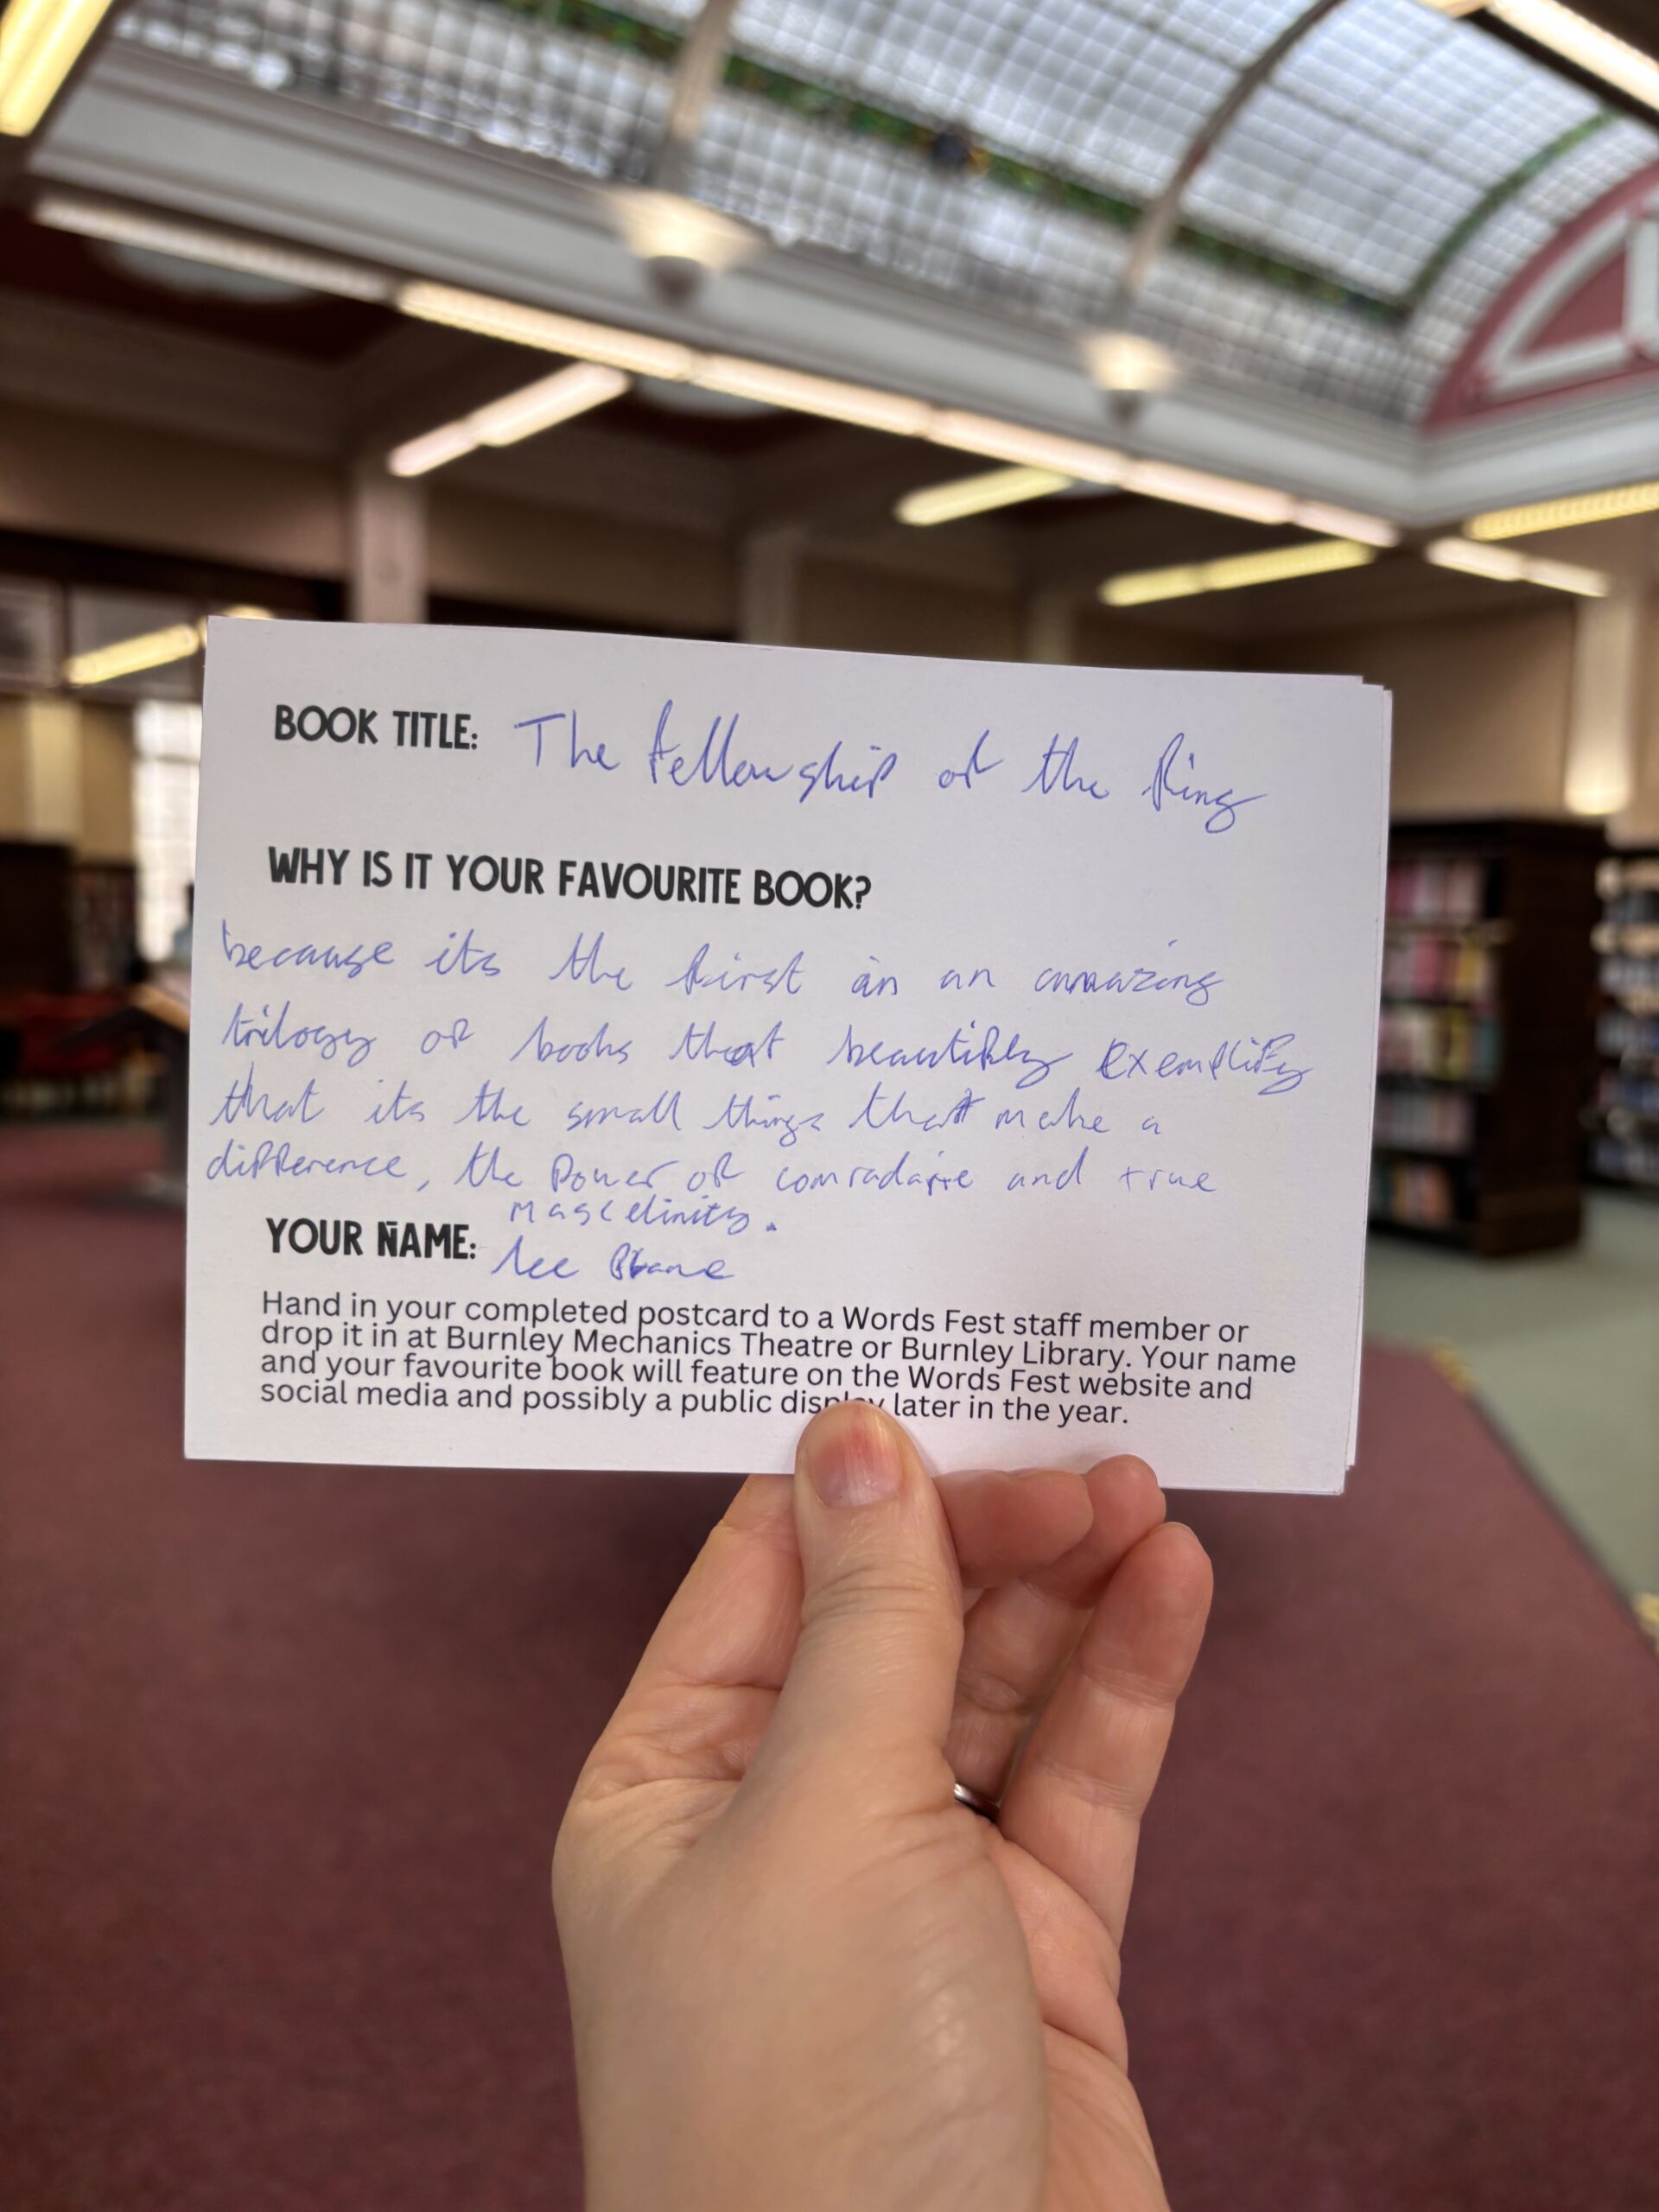 BOOK TITLE: The Fellowship of the Ring
WHY IS IT YOUR FAVOURITE BOOK?
because its the first in an amazing
trilogy of books that beautifully exemplify
that its the small things that make a
difference, the Power of comradarie and true
mascelinity.
YOUR NAME: Lee
Hand in your completed postcard to a Words Fest staff member or
drop it in at Burnley Mechanics Theatre or Burnley Library. Your name
and your favourite book will feature on the Words Fest website and
social media and possibly a public display later in the year.